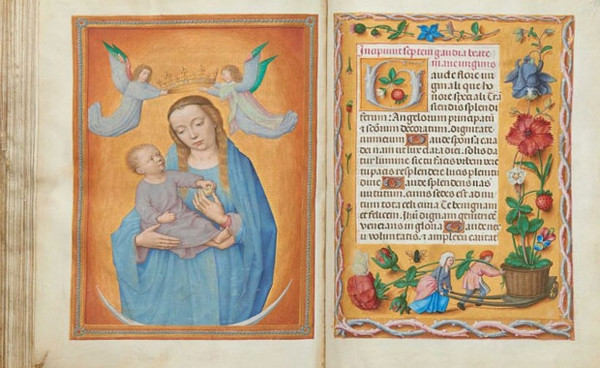 Incipiunt septem gaudia beate
marie virginis
Gaude flore vir
ginali que ho
nore speciali Trā
scendis splendi
ferum: Angelorum principatū
et sctorum decoratum, dignitate
numerum Gaude sponsa cara
dei nam ut lux clara diei: solis da
tur lumine sic tu facis urbem vere
tu pacis resplendere lucis plenitu
dine Gaude splendens vas
virtutum, cuius sedes est ad nu
tum tota celi curia Te benignam
et felicem, Jhū dignam genitricē
venerans in gloria Gaude nexu
voluntatis, et amplexu caritat